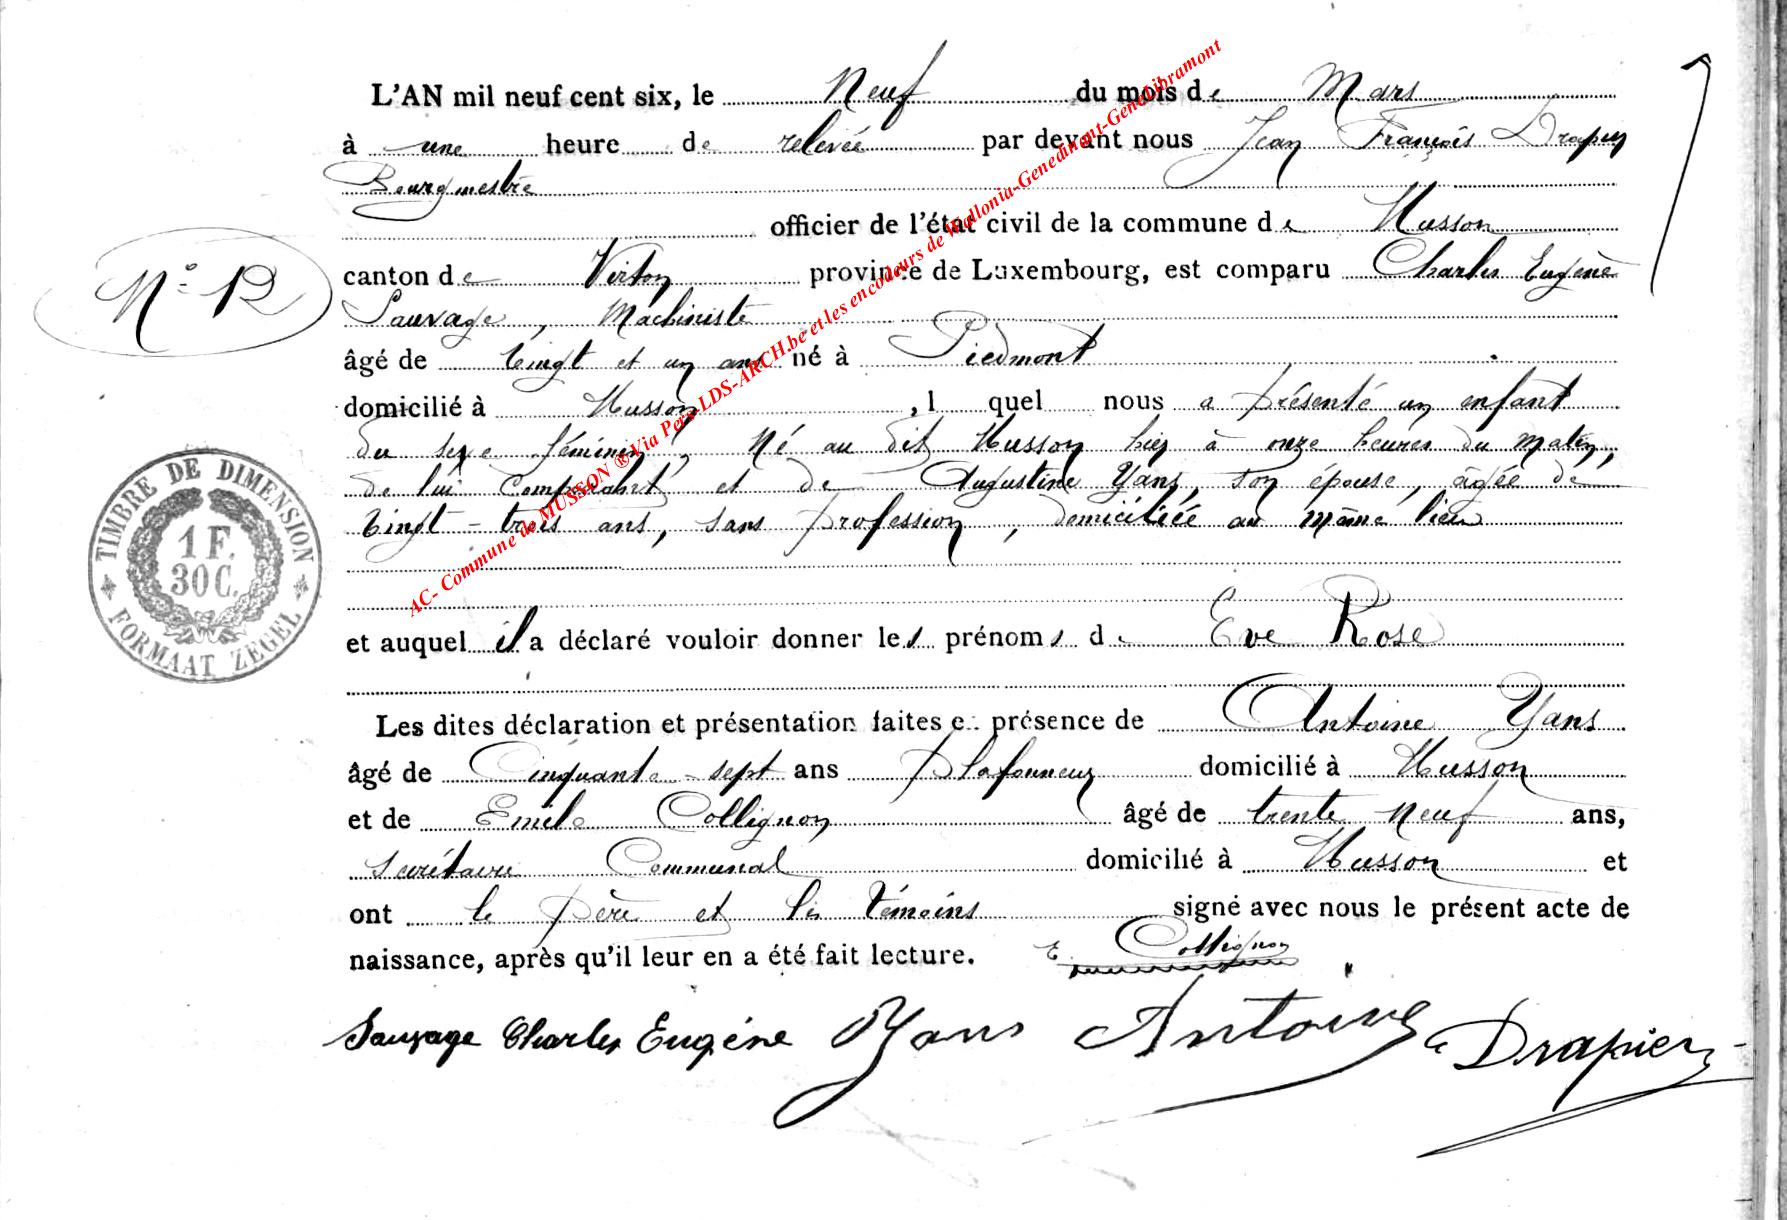 L'AN mil neuf cent six, le Neuf du mois de Mars
à une heure de relevée par devant nous Jean François Drapier
Bourgmestre
officier de l'état civil de la commune de Musson
canton de Virton province de Luxembourg, est comparu Charles Eugène
Sauvage, Machiniste
âgé de vingt et un ans né à Piedmont
domicilié à Musson, l quel nous a présenté un enfant
du sexe féminin, Né au dit Musson hier à onze heures du matin,
de lui comparant et de Augustine Yans, son épouse, âgée de
vingt-trois ans, sans profession, domiciliée au même lieu
et auquel il a déclaré vouloir donner les prénoms de Eve Rose
Les dites déclaration et présentation faites en présence de Antoine Yans
âgé de Cinquante-sept ans plafonneur domicilié à Musson
et de Emile Collignon âgé de trente Neuf ans,
secrétaire Communal domicilié à Musson et
ont le père et les témoins signé avec nous le présent acte de
naissance, après qu'il leur en a été fait lecture. E. Collignon
Sauvage Charles Eugène Yans Antoine Drapier
N° 12
TIMBRE DE DIMENSION
1 F.
30 C.
FORMAAT ZEGEL
AC- Commune de MUSSON ® Via Pers LDS-ARCH.be et les encodeurs de Wallonia-Genedinant-GeneLibramont